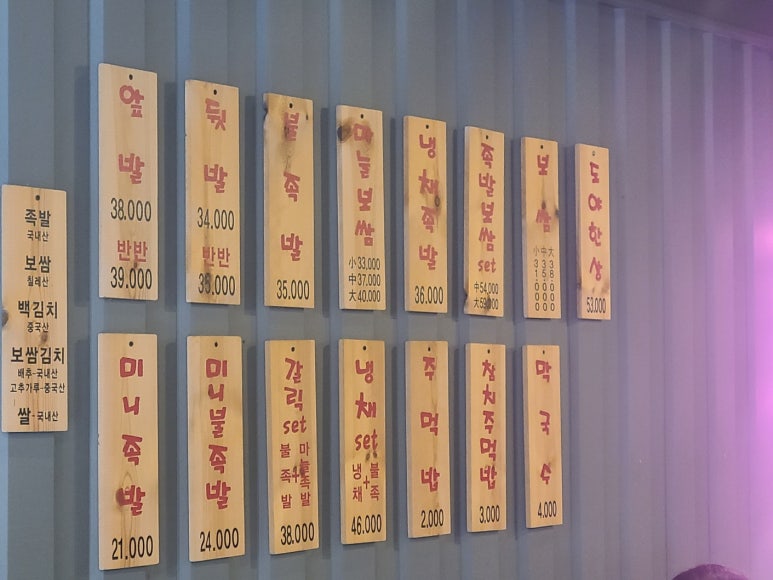 족발
국내산
보쌈
칠레산
백김치
중국산
보쌈김치
배추-국내산
고추가루-중국산
쌀-국내산
앞발
38.000
반반
39.000
뒷발
34,000
반반
35,000
불족발
35.000
마늘보쌈
小33,000
中37,000
大40,000
냉채족발
36.000
족발보쌈
set
中54,000
大59,000
보쌈
小31000
中35000
大38000
도야한상
53.000
미니족발
21.000
미니불족발
24.000
갈릭
set
불족발+마늘족발
38.000
냉채
set
냉채+불족
46.000
주먹밥
2.000
참치주먹밥
3.000
막국수
4,000